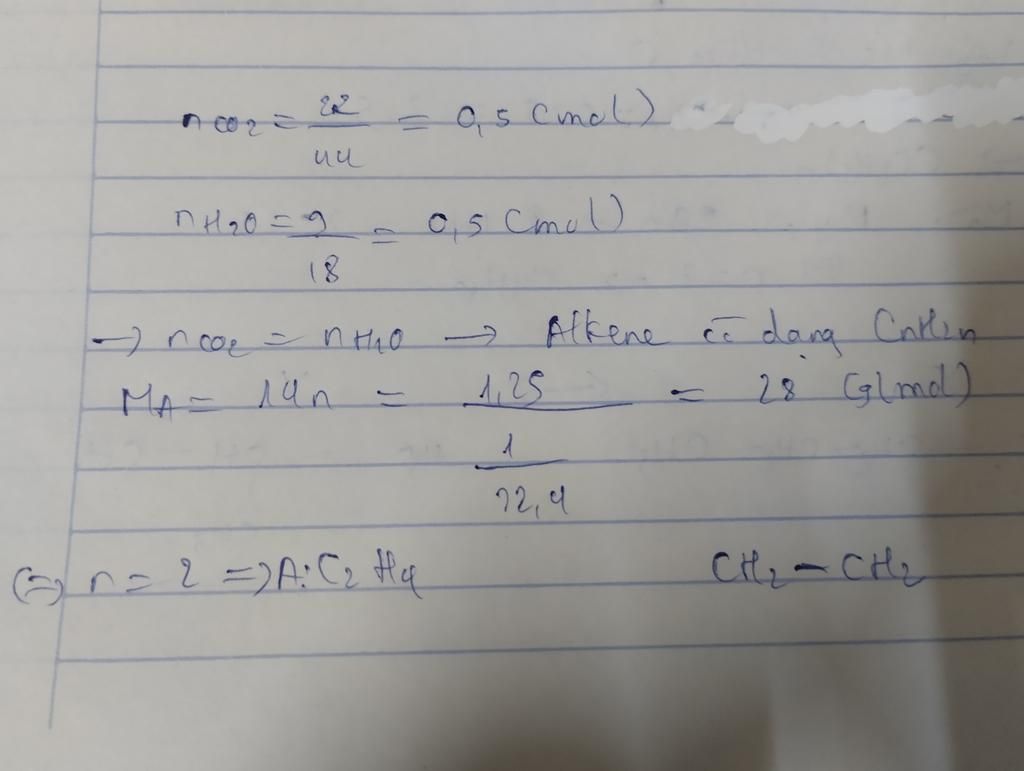 nCO2 = 22/44 = 0,5 (mol)
nH2O = 9/18 = 0,5 (mol)
→ nCO2 = nH2O → Alkene có dạng CnH2n
MA = 14n = 1,25/(1/22,4) = 28 (g/mol)
(=) n = 2 => A: C2H4 CH2 – CH2